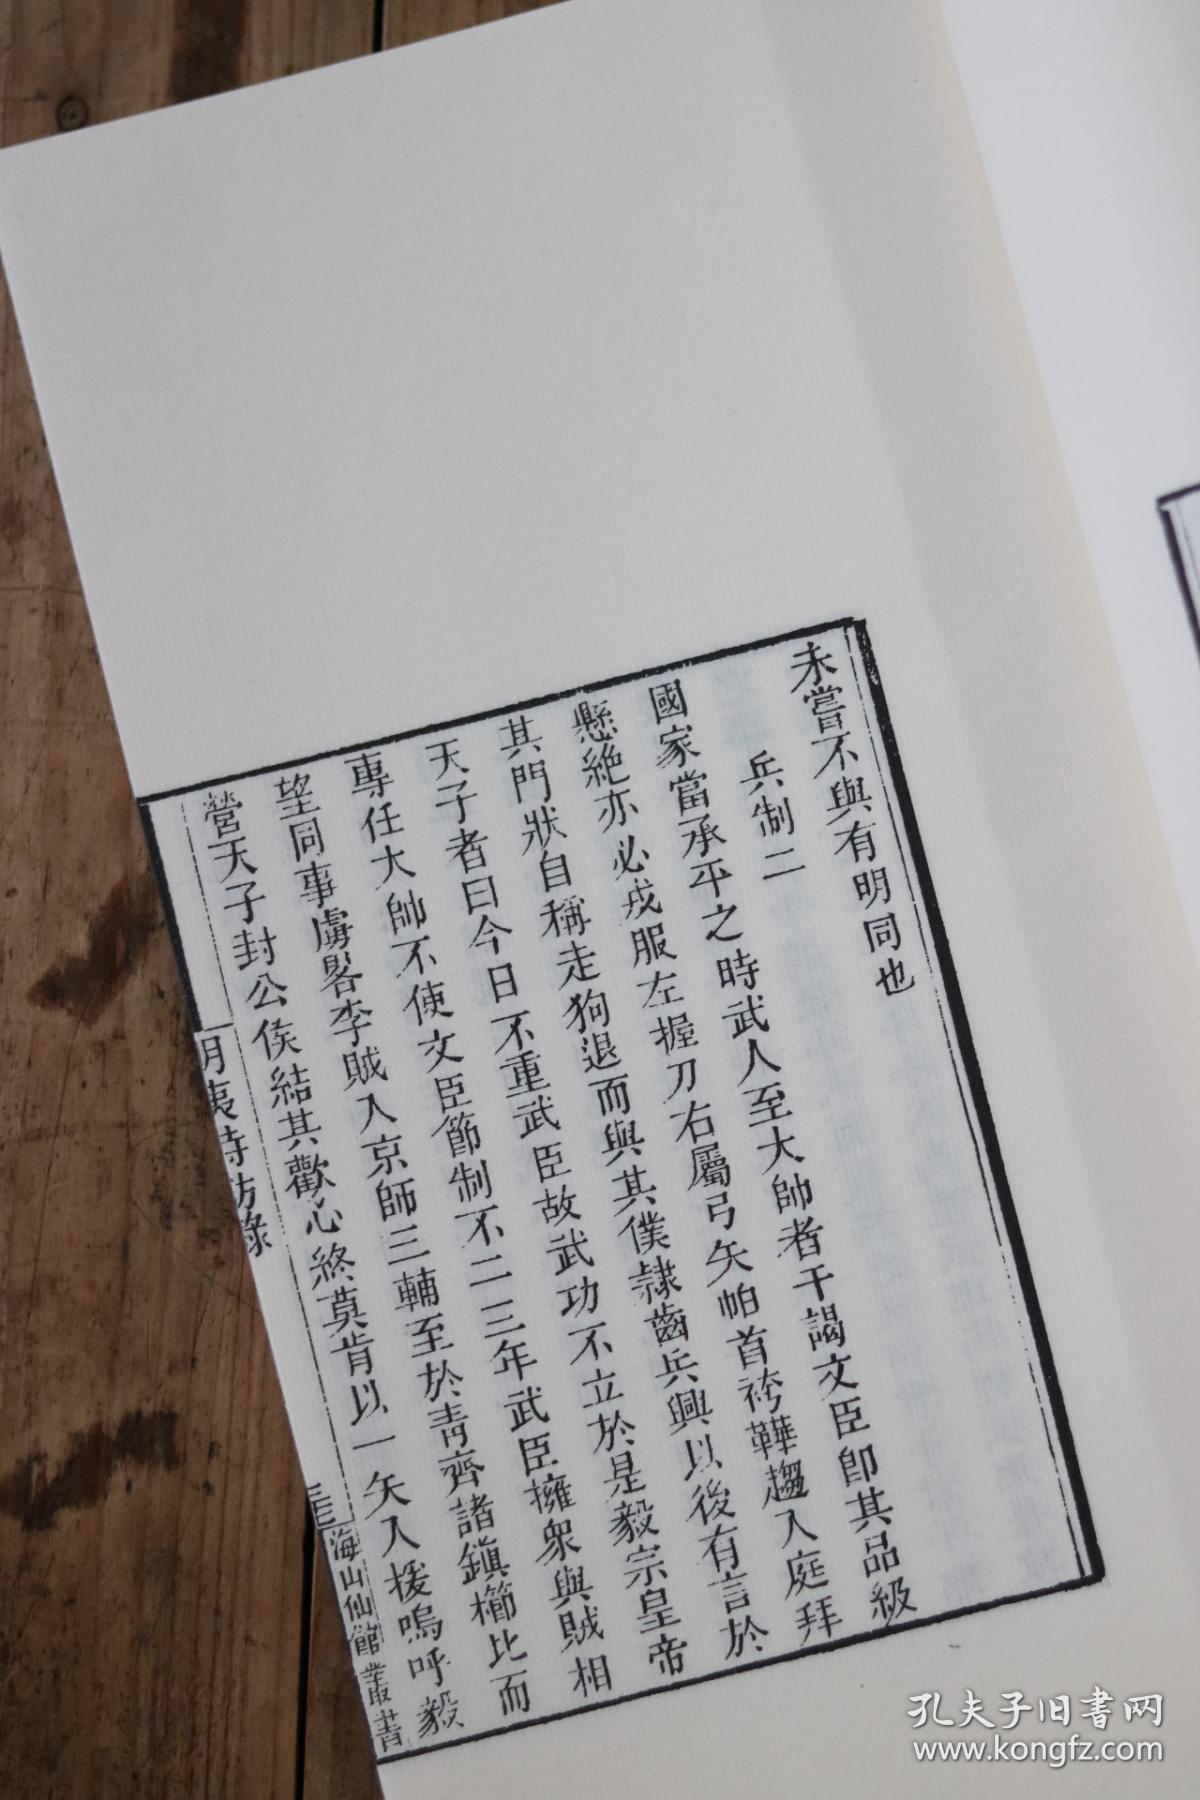 未嘗不與有明同也
兵制二
國家當承平之時武人至大帥者干謁文臣卽其品級
懸絶亦必戎服左握刀右屬弓矢帕首袴鞾趨入庭拜
其門狀自稱走狗退而與其僕隷齒兵興以後有言於
天子者曰今日不重武臣故武功不立於是毅宗皇帝
專任大帥不使文臣節制不二三年武臣擁衆與賊相
望同事虜畧李賊入京師三輔至於青齊諸鎮櫛比而
營天子封公侯結其歡心終莫肯以一矢入援嗚呼毅
明夷待訪錄
海山仙館叢書
孔夫子旧书网
www.kongfz.com